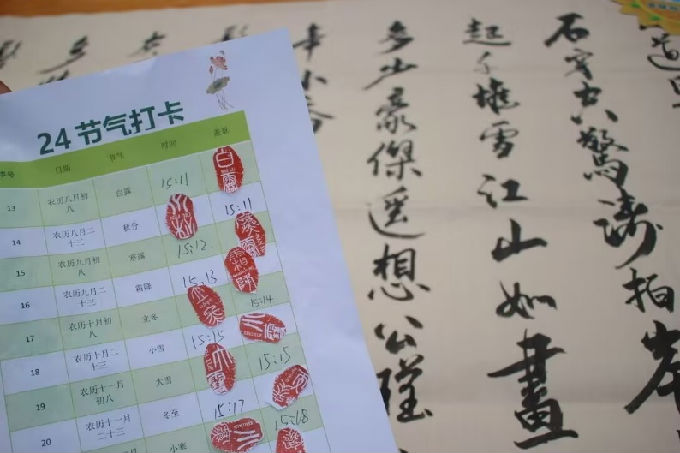 24节气打卡
日期 节气 时间 盖章
13 农历八月初八 白露 15:11 白露
14 农历八月二十三 秋分 15:11
15 农历九月初八 寒露 15:12
16 农历九月二十三 霜降 15:13
17 农历十月初八 立冬 15:14
18 农历十月二十三 小雪 15:15
19 农历十一月初八 大雪 15:15
20 农历十一月二十三 冬至 15:17
小寒 15:18
石穿空驚濤拍岸
起千堆雪江山如畫
多少豪傑遥想公瑾
年小